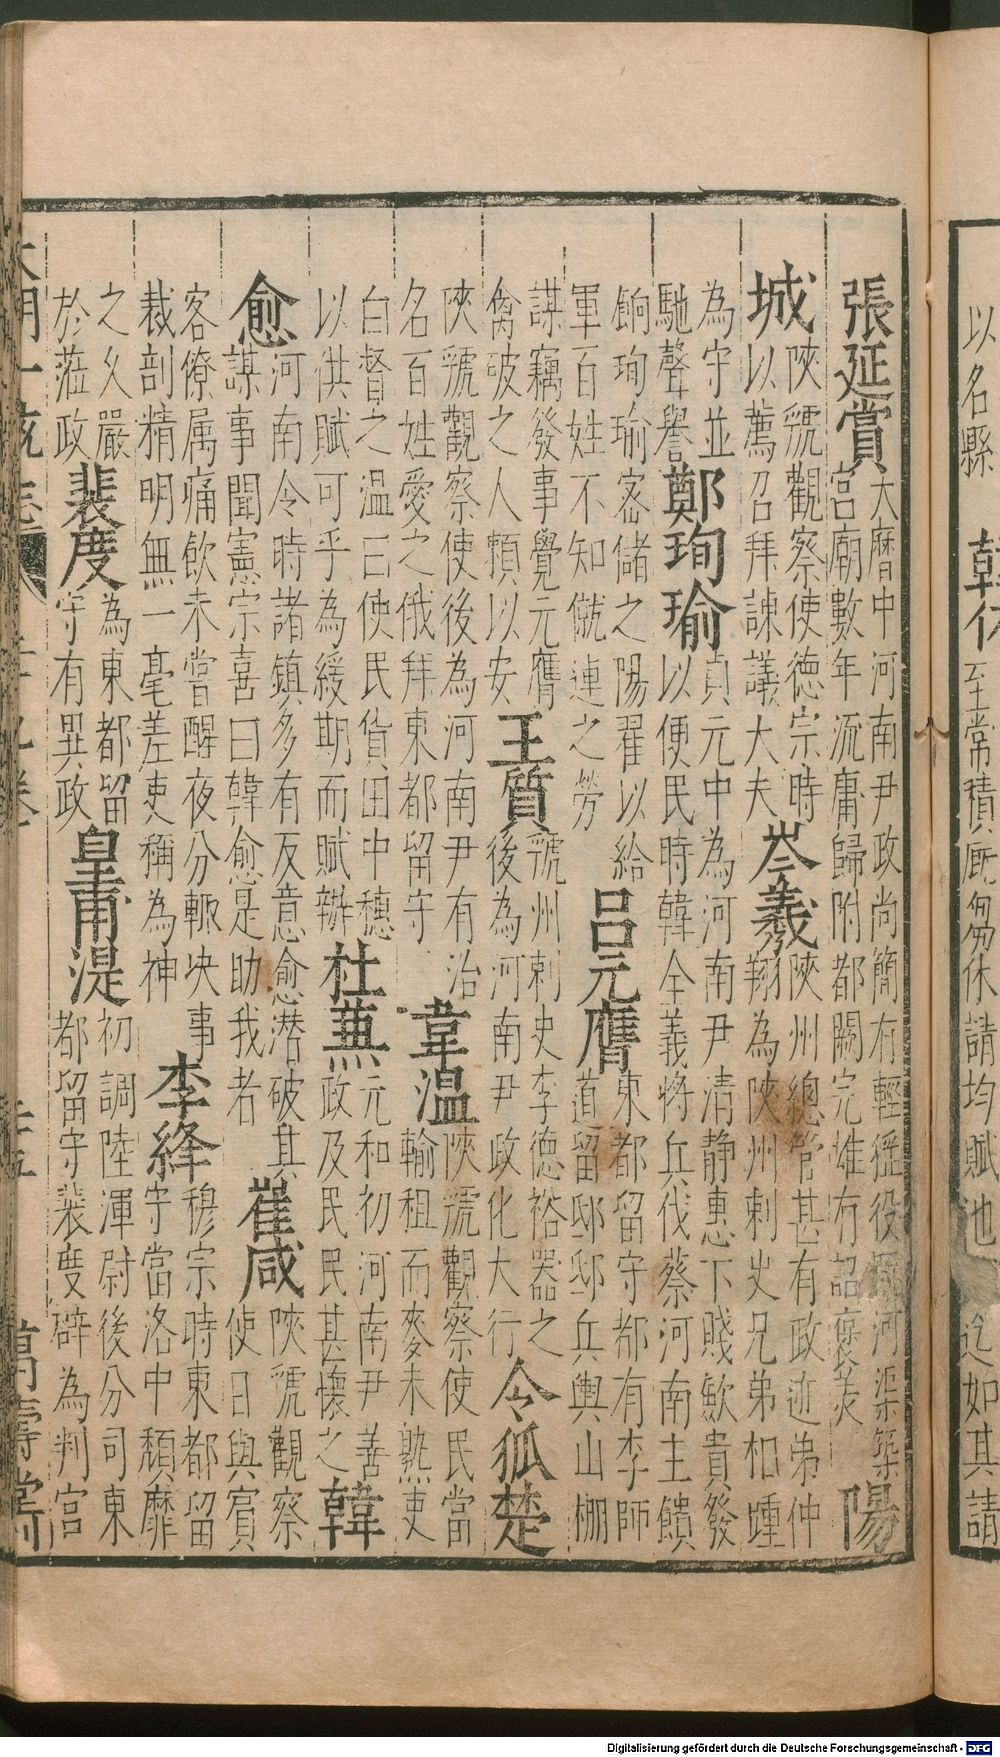 以名縣
韓休
至常積厩芻休請均賦
迄如其請
張延賞
大曆中河南尹政尚簡有輕徭役河渠築
宮廟數年流庸歸附都闕完雄有詔褒美
陽
城
陜虢觀察使德宗時
以薦召拜諫議大夫
岑羲
陜州總管甚有政迹弟仲
翔為陜州刺史兄弟相踵
為守並
馳聲譽
鄭珣瑜
貞元中為河南尹清静惠下賤歛貴發
以便民時韓全義將兵伐蔡河南主饋
餉珣瑜密儲之陽翟以給
軍百姓不知僦連之勞
呂元膺
東都留守都有李師
道留邸邸兵與山棚
謀竊發事覺元膺
禽破之人頼以安
王質
虢州刺史李德裕器之
後為河南尹政化大行
令狐楚
陜虢觀察使後為河南尹有治
名百姓愛之俄拜東都留守
韋温
陜虢觀察使民當
輸租而麥未熟吏
白督之温曰使民貨田中穗
以供賦可乎為緩期而賦辦
杜兼
元和初河南尹善
政及民民甚懷之
韓
愈
河南令時諸鎮多有反意愈潜破其
謀事聞憲宗喜曰韓愈是助我者
崔咸
陜虢觀察
使日與賓
客僚属痛飲未嘗醒夜分輙决事
裁剖精明無一毫差吏稱為神
李絳
穆宗時東都留
守當洛中頹靡
之久嚴
於蒞政
裴度
為東都留
守有異政
皇甫湜
初調陸渾尉後分司東
都留守裴度辟為判官
大明一統志
萬壽堂
Digitalisierung gefördert durch die Deutsche Forschungsgemeinschaft - DFG